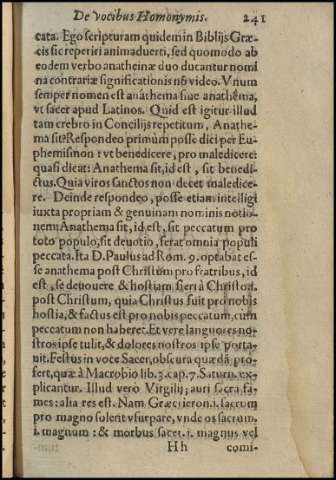 De vocibus Homonymis. 241
cata. Ego scripturam quidem in Biblijs Græ-
cis sic reperiri animaduerti, sed quomodo ab
eodem verbo anatheinæ duo ducantur nomi
na contrariæ significationis nõ video. Vnum
semper nomen est anáthema siue anathêma,
vt sacer apud Latinos. Quid est igitur illud
tam crebro in Concilijs repetitum, Anathe-
ma sit? Respondeo primum posse dici per Eu-
phemismon: vt benedicere, pro maledicere:
quasi dicat: Anathema sit, id est, sit benedi-
ctus. Quia viros sanctos non decet maledice-
re. Deinde respondeo, posse etiam intelligi
iuxta propriam & genuinam nominis notio-
nem: Anathema sit, id est, sit peccatum pro
toto populo, sit deuotio, ferat omnia populi
peccata. Ita D. Paulus ad Rom. 9. optabat es-
se anathema post Christum pro fratribus, id
est, se deuouere & hostiam fieri à Christo.
post Christum, quia Christus fuit pro nobis
hostia, & factus est pro nobis peccatum, cùm
peccatum non haberet. Et vere languores no-
stros ipse tulit, & dolores nostros ipse porta-
uit. Festus in voce Sacer, obscura quædã pro-
fert, quæ à Macrobio lib. 3. cap. 7. Saturn. ex-
plicantur. Illud verò Virgilij; auri sacra fa-
mes: alia res est. Nam Græci ieron. i. sacrum
pro magno solent vsurpare, vnde os sacrum,
i. magnum: & morbus sacer. i. magnus vel
Hh comi-